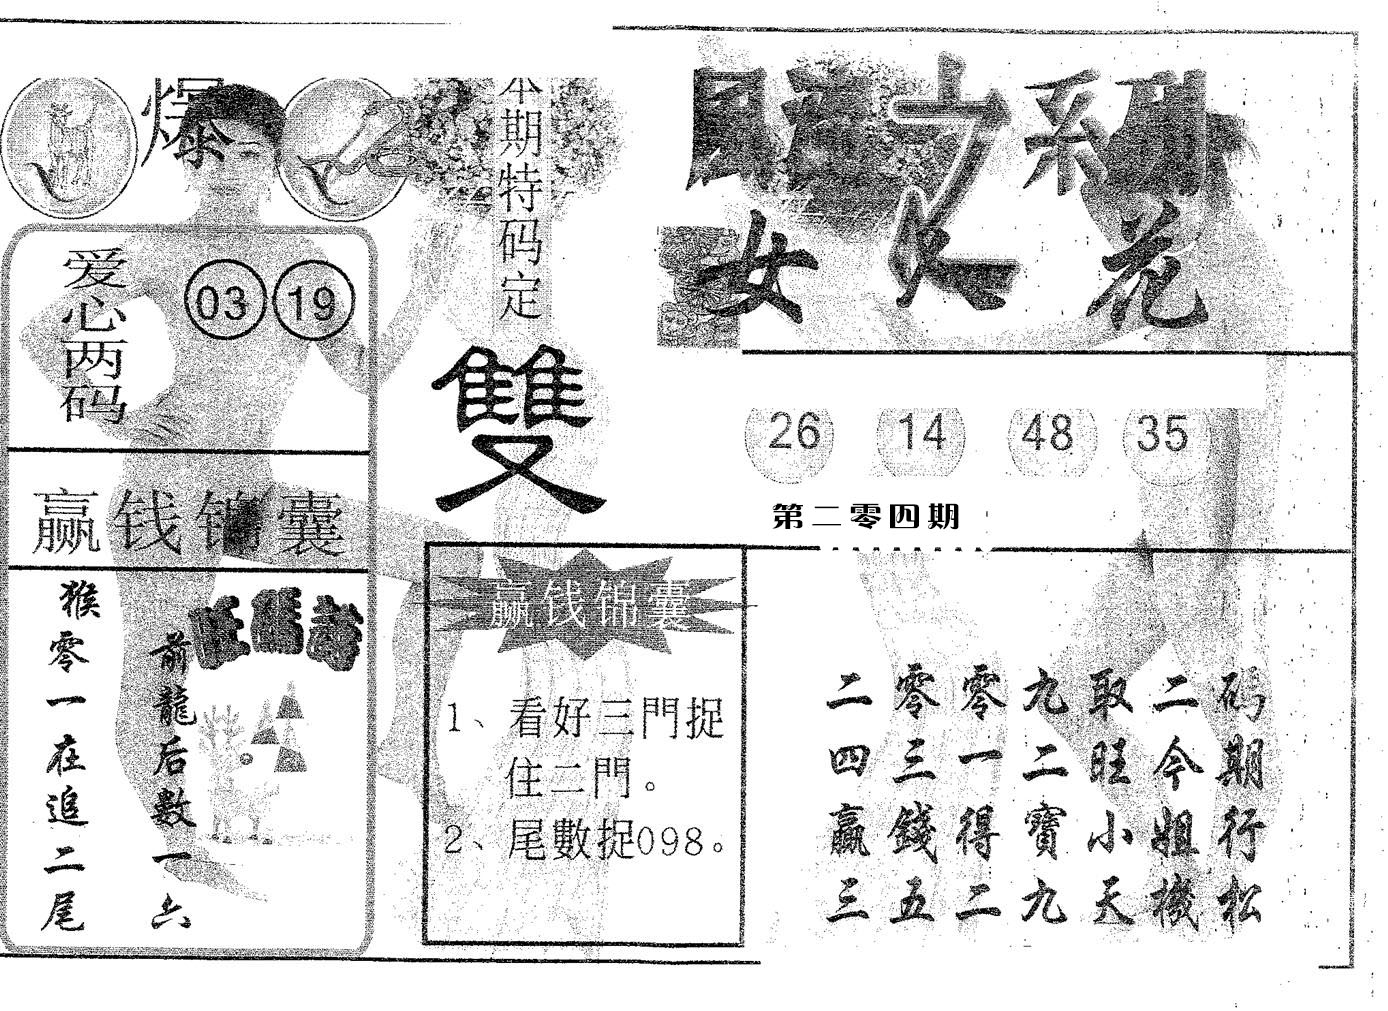 爆
本期特码定
雙
爱心两码
03 19
赢钱锦囊
猴零一在追二尾
前龍后數一六
赢钱锦囊
1、看好三門捉
住二門。
2、尾數捉098。
女 花
26 14 48 35
第二零四期
二零零九取二码
四三一二旺今期
贏錢得寶小姐行
三五二九天機松